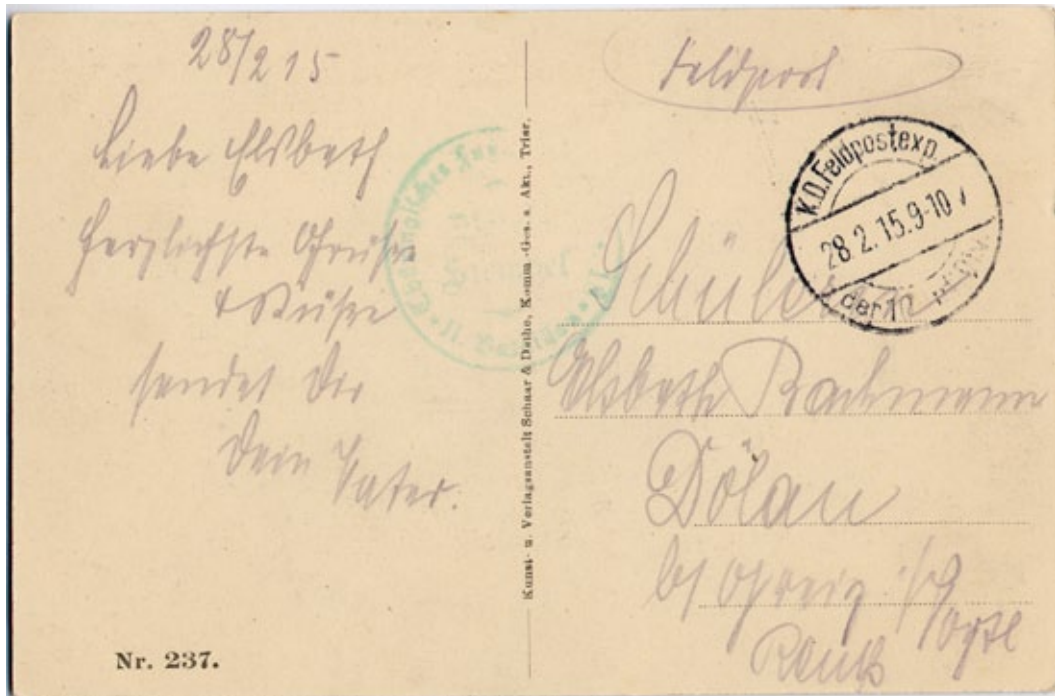 28/2 15
Liebe Elsbeth
herzlichste Grüße
& Küsse
sendet Dir
Dein Vater.
Nr. 237.
Kunst- u. Verlagsanstalt Schaar & Dathe, Komm.-Ges. a. Akt., Trier.
Feldpost
K.D.Feldpostexp.
28.2.15.9-10
der
Schüler
Elsbeth Bachmann
Dölau
b/ Greiz
Reuß